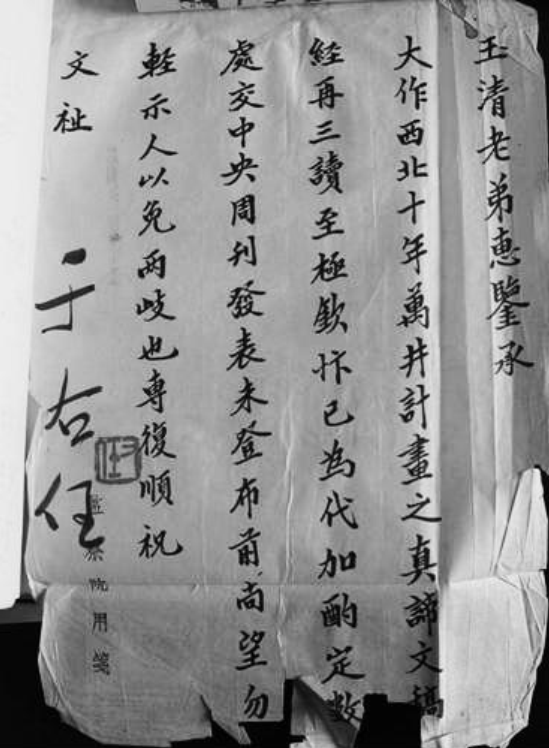 玉清老弟惠鑒承
大作西北十年萬井計畫之真諦文稿
經再三讀至極欽忭已為代加酌定數
處交中央周刊發表未登布前尚望勿
輕示人以免两歧也專復順祝
文祉
于右任
監察院用箋